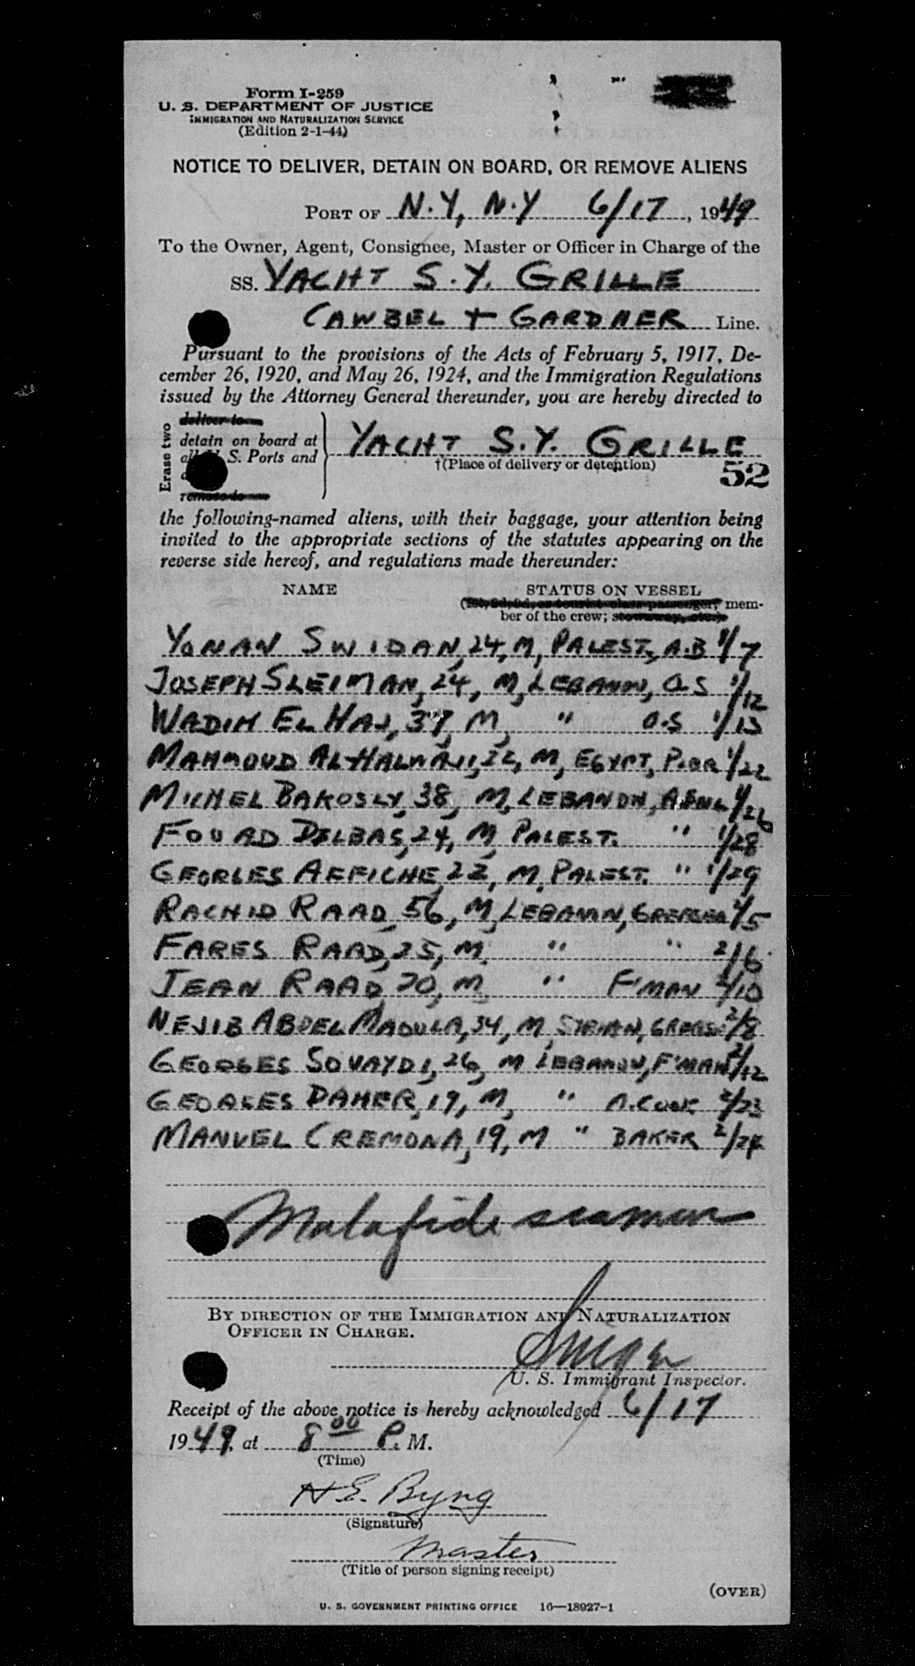 Form I-259
U. S. DEPARTMENT OF JUSTICE
IMMIGRATION AND NATURALIZATION SERVICE
(Edition 2-1-44)
NOTICE TO DELIVER, DETAIN ON BOARD, OR REMOVE ALIENS
PORT OF N.Y, N.Y 6/17, 1949
To the Owner, Agent, Consignee, Master or Officer in Charge of the
SS. YACHT S.Y. GRILLE
CAWBEL + GARDNER Line.
Pursuant to the provisions of the Acts of February 5, 1917, De-
cember 26, 1920, and May 26, 1924, and the Immigration Regulations
issued by the Attorney General thereunder, you are hereby directed to
Erase two
deliver to
detain on board at
all U. S. Ports and
remove to
YACHT S.Y. GRILLE
†(Place of delivery or detention)
52
the following-named aliens, with their baggage, your attention being
invited to the appropriate sections of the statutes appearing on the
reverse side hereof, and regulations made thereunder:
NAME STATUS ON VESSEL
(1st, 2d, 3d, or tourist class passenger; mem-
ber of the crew; stowaway, etc.)
YONAN SWIDAN, 24, M, PALEST., A.B 1/7
JOSEPH SLEIMAN, 24, M, LEBANON, O.S 1/12
WADIH EL HAJ, 37, M, " O.S 1/13
MAHMOUD AL-HALWANI, M, EGYPT, 1/22
MICHEL BAKOSLY, 38, M, LEBANON, 1/26
FOUAD DELBAS, 24, M, PALEST. " 1/28
GEORGES AFFICHE, 22, M, PALEST. " 1/29
RACHID RAAD, 56, M, LEBANON, GREASER 2/5
FARES RAAD, 25, M, " " 2/6
JEAN RAAD, 20, M, " F'MAN 2/10
NEJIB ABDEL MADULA, 34, M, SYRIAN, GREASER 2/8
GEORGES SOUAYDI, 26, M LEBANON, F'MAN 2/12
GEORGES DAHER, 19, M, " A. COOK 2/23
MANUEL CREMONA, 19, M " BAKER 2/24
Malafide seamen
BY DIRECTION OF THE IMMIGRATION AND NATURALIZATION
OFFICER IN CHARGE.
U. S. Immigrant Inspector.
Receipt of the above notice is hereby acknowledged 6/17
1949, at 8 00 P. M.
(Time)
H.E. Byng
(Signature)
Master
(Title of person signing receipt)
(OVER)
U. S. GOVERNMENT PRINTING OFFICE 16—18927-1